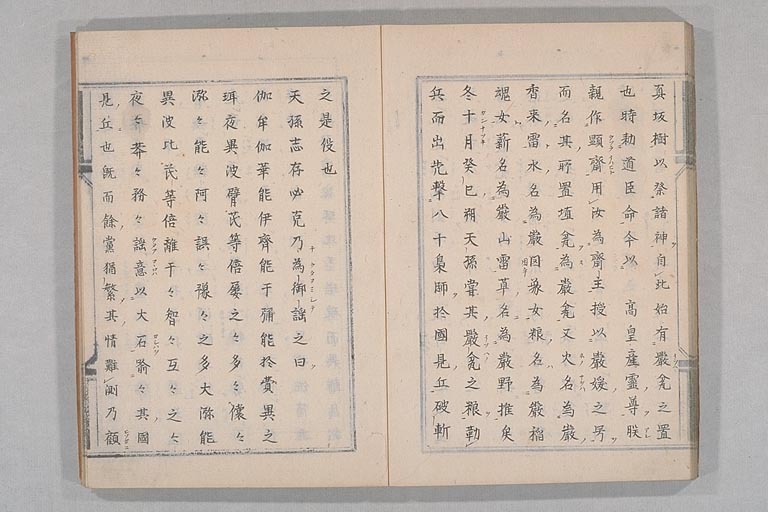 真坂樹以祭諸神自此始有嚴瓮之置
也時勅道臣命今以　高皇産靈尊朕
親作顕齋用汝為齋主授以嚴媛之号
而名其所置埴瓮為嚴瓮又火名為嚴
香來雷水名為嚴罔象女粮名為嚴稲
魂女薪名為嚴山雷草名為嚴野推矣
冬十月癸巳朔天孫甞其嚴瓮之粮勒
兵而出先擊八十梟師於國見丘破斬
之是役也
天孫志存必克乃為御謡之曰
伽牟伽華能伊齊能于彌能於費異之
珥夜異波臂茋等倍屡之多々儴々
瀰々能々阿々誤々豫々之多大瀰能
異波比茋等倍離于々智々互々之々
夜々莽々務々謡意以大石喩々其國
見丘也既而餘黨猶繁其情難測乃顧